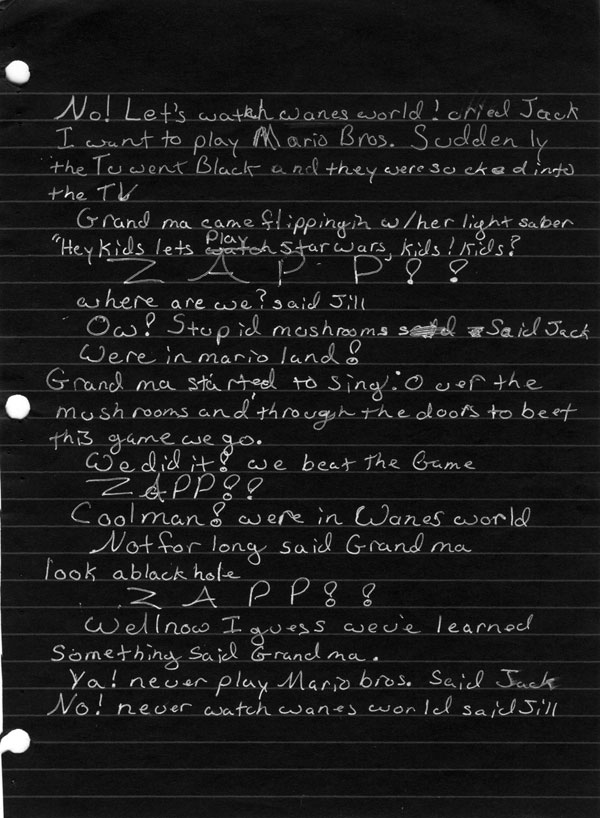 No! Let's watch wanes world! cried Jack
I want to play Mario Bros. Suddenly
the Tv went Black and they were sucked into
the TV
Grand ma came flipping in w/her light saber
"Hey Kids lets play Star wars, kids! kids?
Z A P P ! !
where are we? said Jill
Ow! Stupid mushrooms said Jack
Were in mario land!
Grand ma started to sing: Over the
mushrooms and through the doors to beet
this game we go.
We did it! we beat the Game
ZAPP!!
Cool man! were in Wanes world
Not for long said Grand ma
look a black hole
Z A P P ! !
Well now I guess weve learned
Something said Grand ma.
Ya! never play Mario bros. Said Jack
No! never watch wanes world said Jill